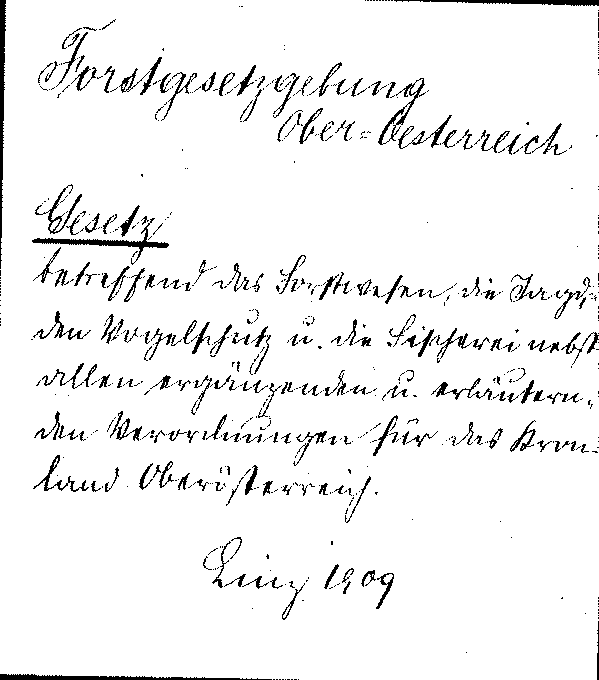 Forstgesetzgebung
Ober=Oesterreich
Gesetz
betreffend das Forstwesen, die Jagd,
den Vogelschutz u. die Fischerei nebst
allen ergänzenden u. erläutern-
den Verordnungen für das Kron-
land Oberösterreich.
Linz 1909